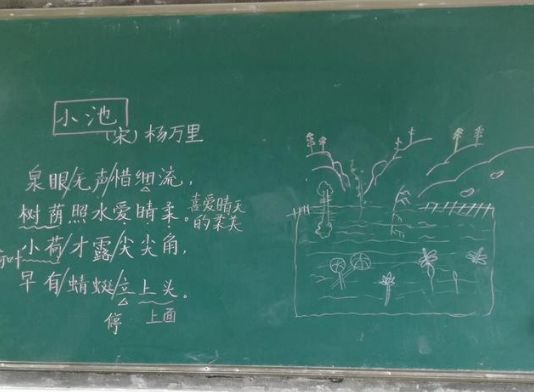 小池
(宋) 杨万里
泉眼/无声/惜细流，
树荫照水爱晴柔。
喜爱晴天
的柔美
叶
小荷/才露/尖尖角，
早有/蜻蜓/立上头。
停 上面